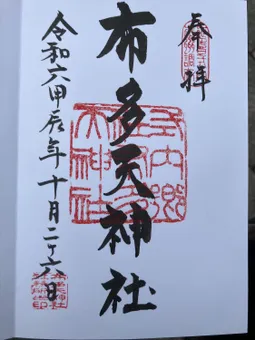 奉拝
布多天神社
令和六甲辰年十月二十六日